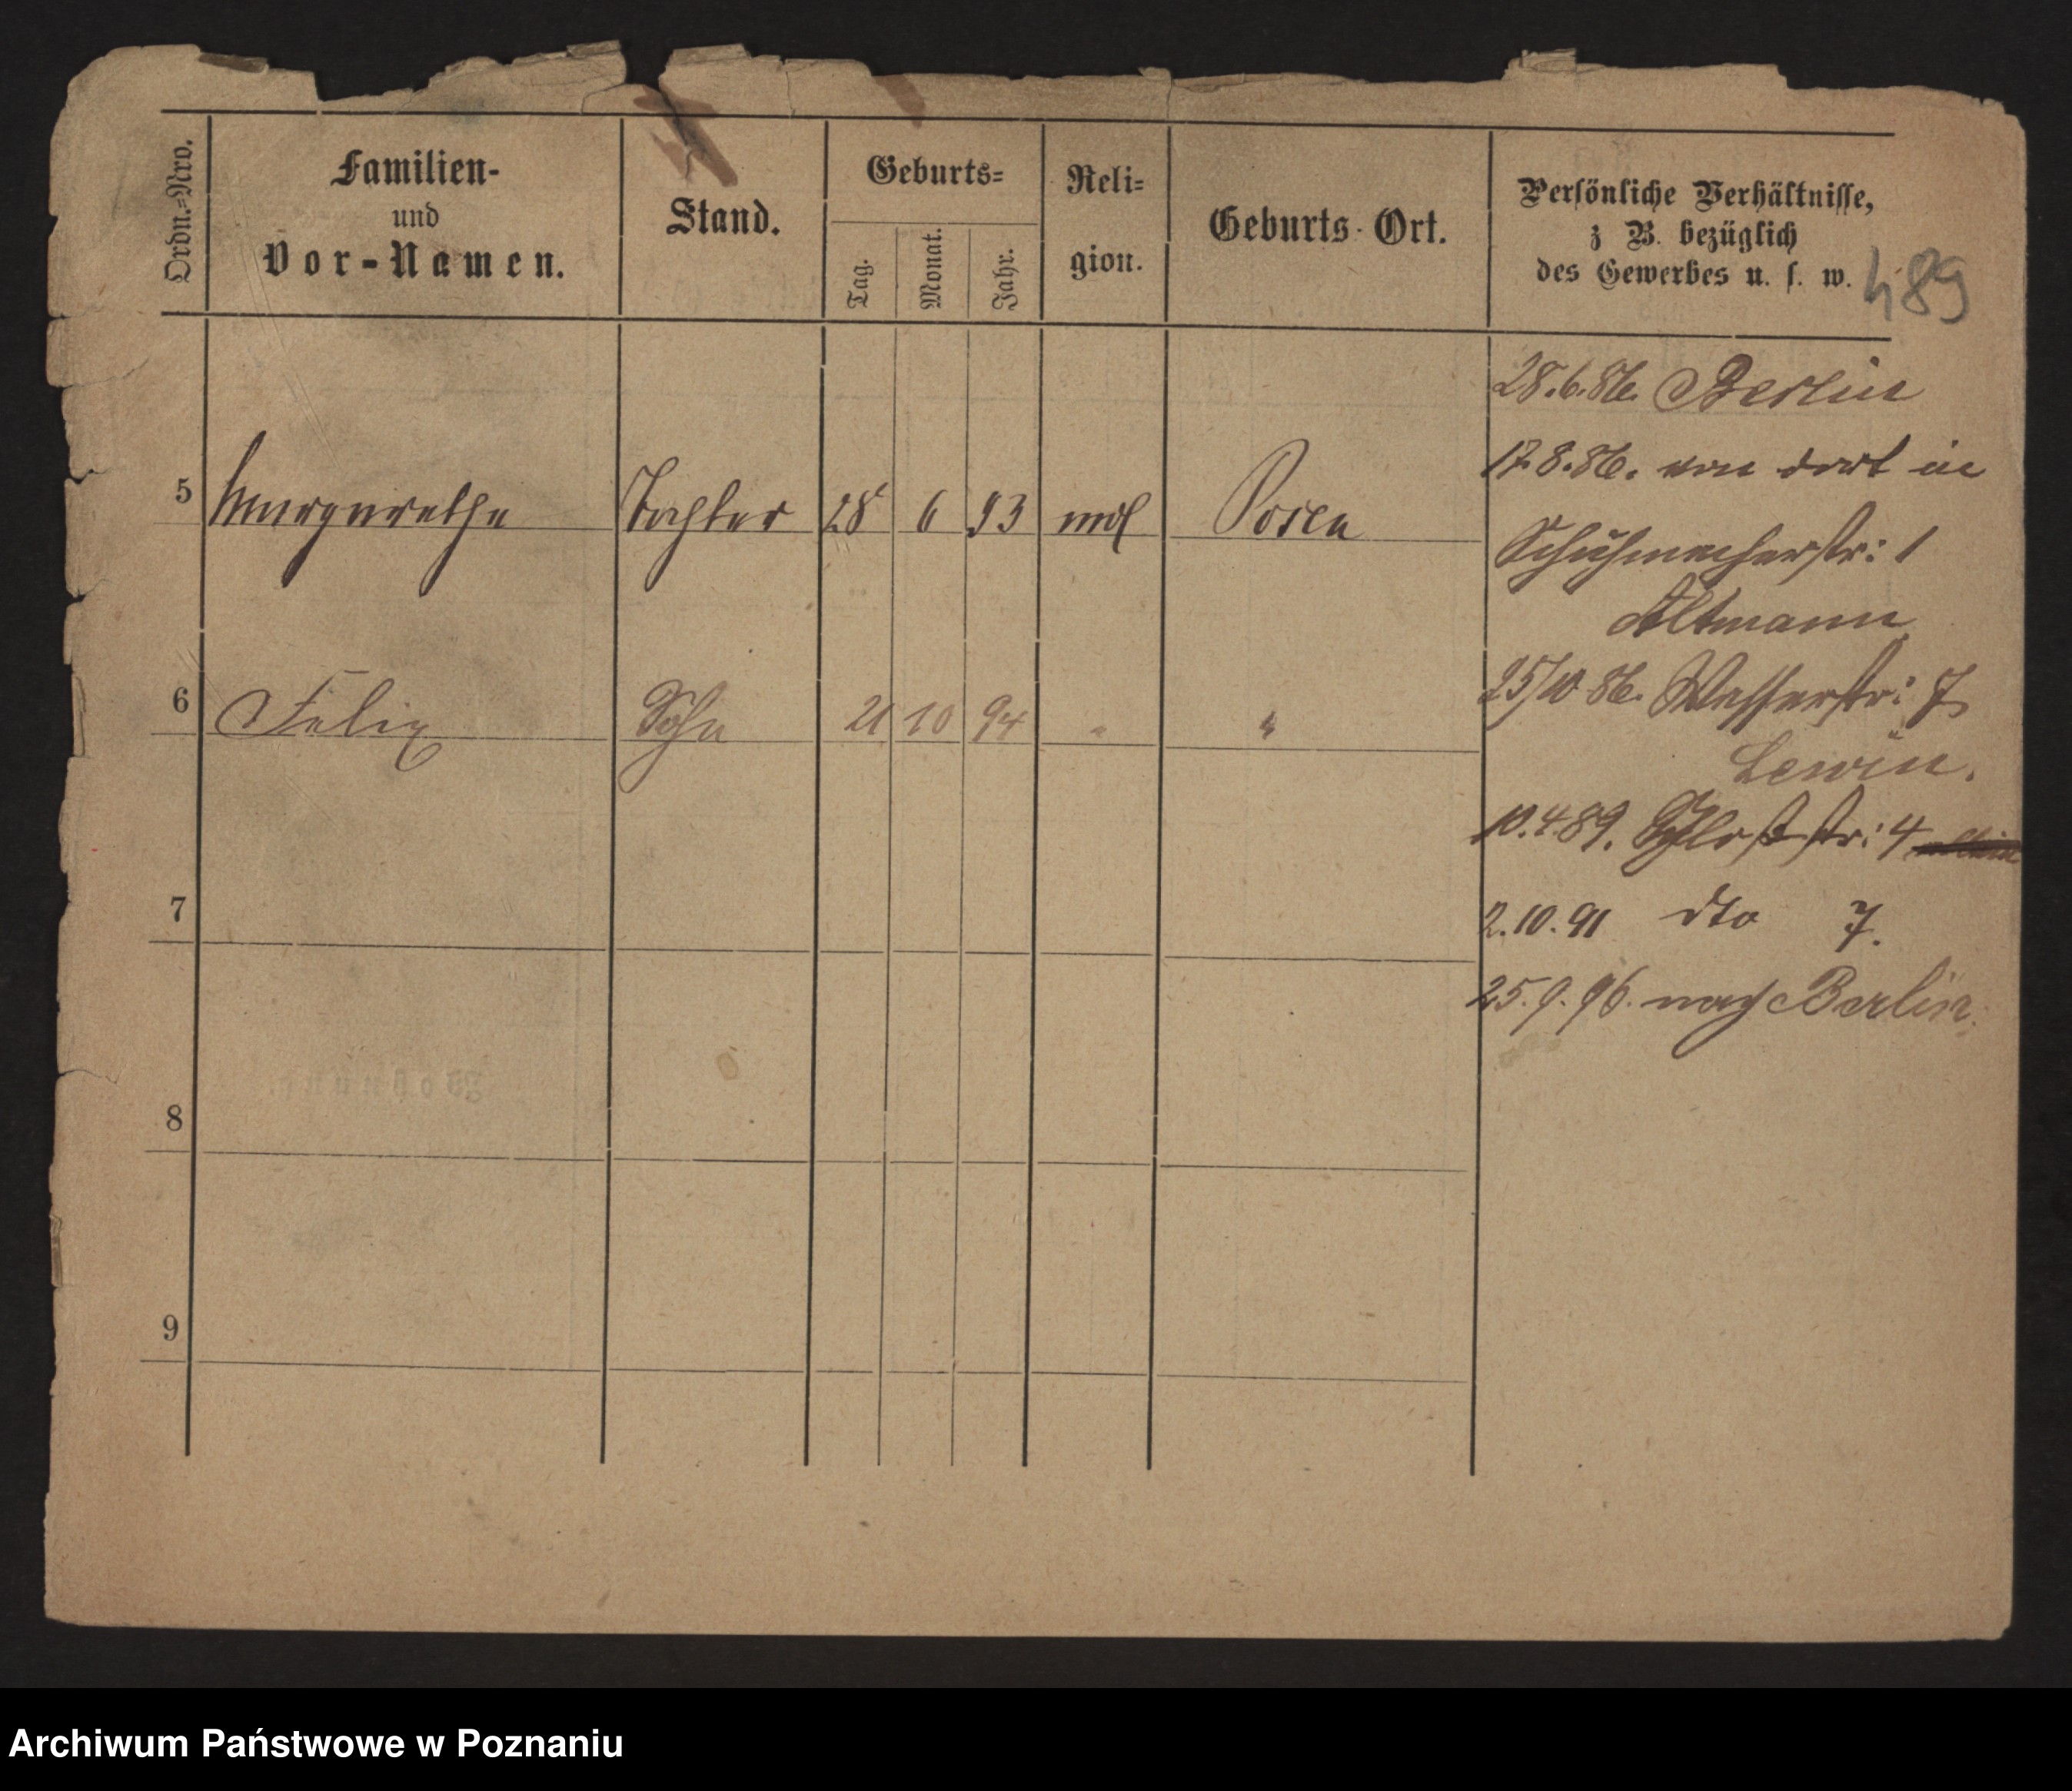 Ordn.=Nro.
Familien-
und
Vor-Namen.
Stand.
Geburts=
Tag.
Monat.
Jahr.
Reli=
gion.
Geburts-Ort.
Persönliche Verhältnisse,
z B. bezüglich
des Gewerbes u. s. w.
489
28.6.86. Berlin
17.8.86. von dort in
5 Margarethe Tochter 28 6 93 mos Posen
Schuhmacherstr: 1
Altmann
25/10 86. Wasserstr: 7
6 Felix Sohn 21 10 94 " "
Lewin.
10.4.89. Schloßstr: 4
7
2.10.91 dto 7.
25.9.96. nach Berlin.
8
9
Archiwum Państwowe w Poznaniu